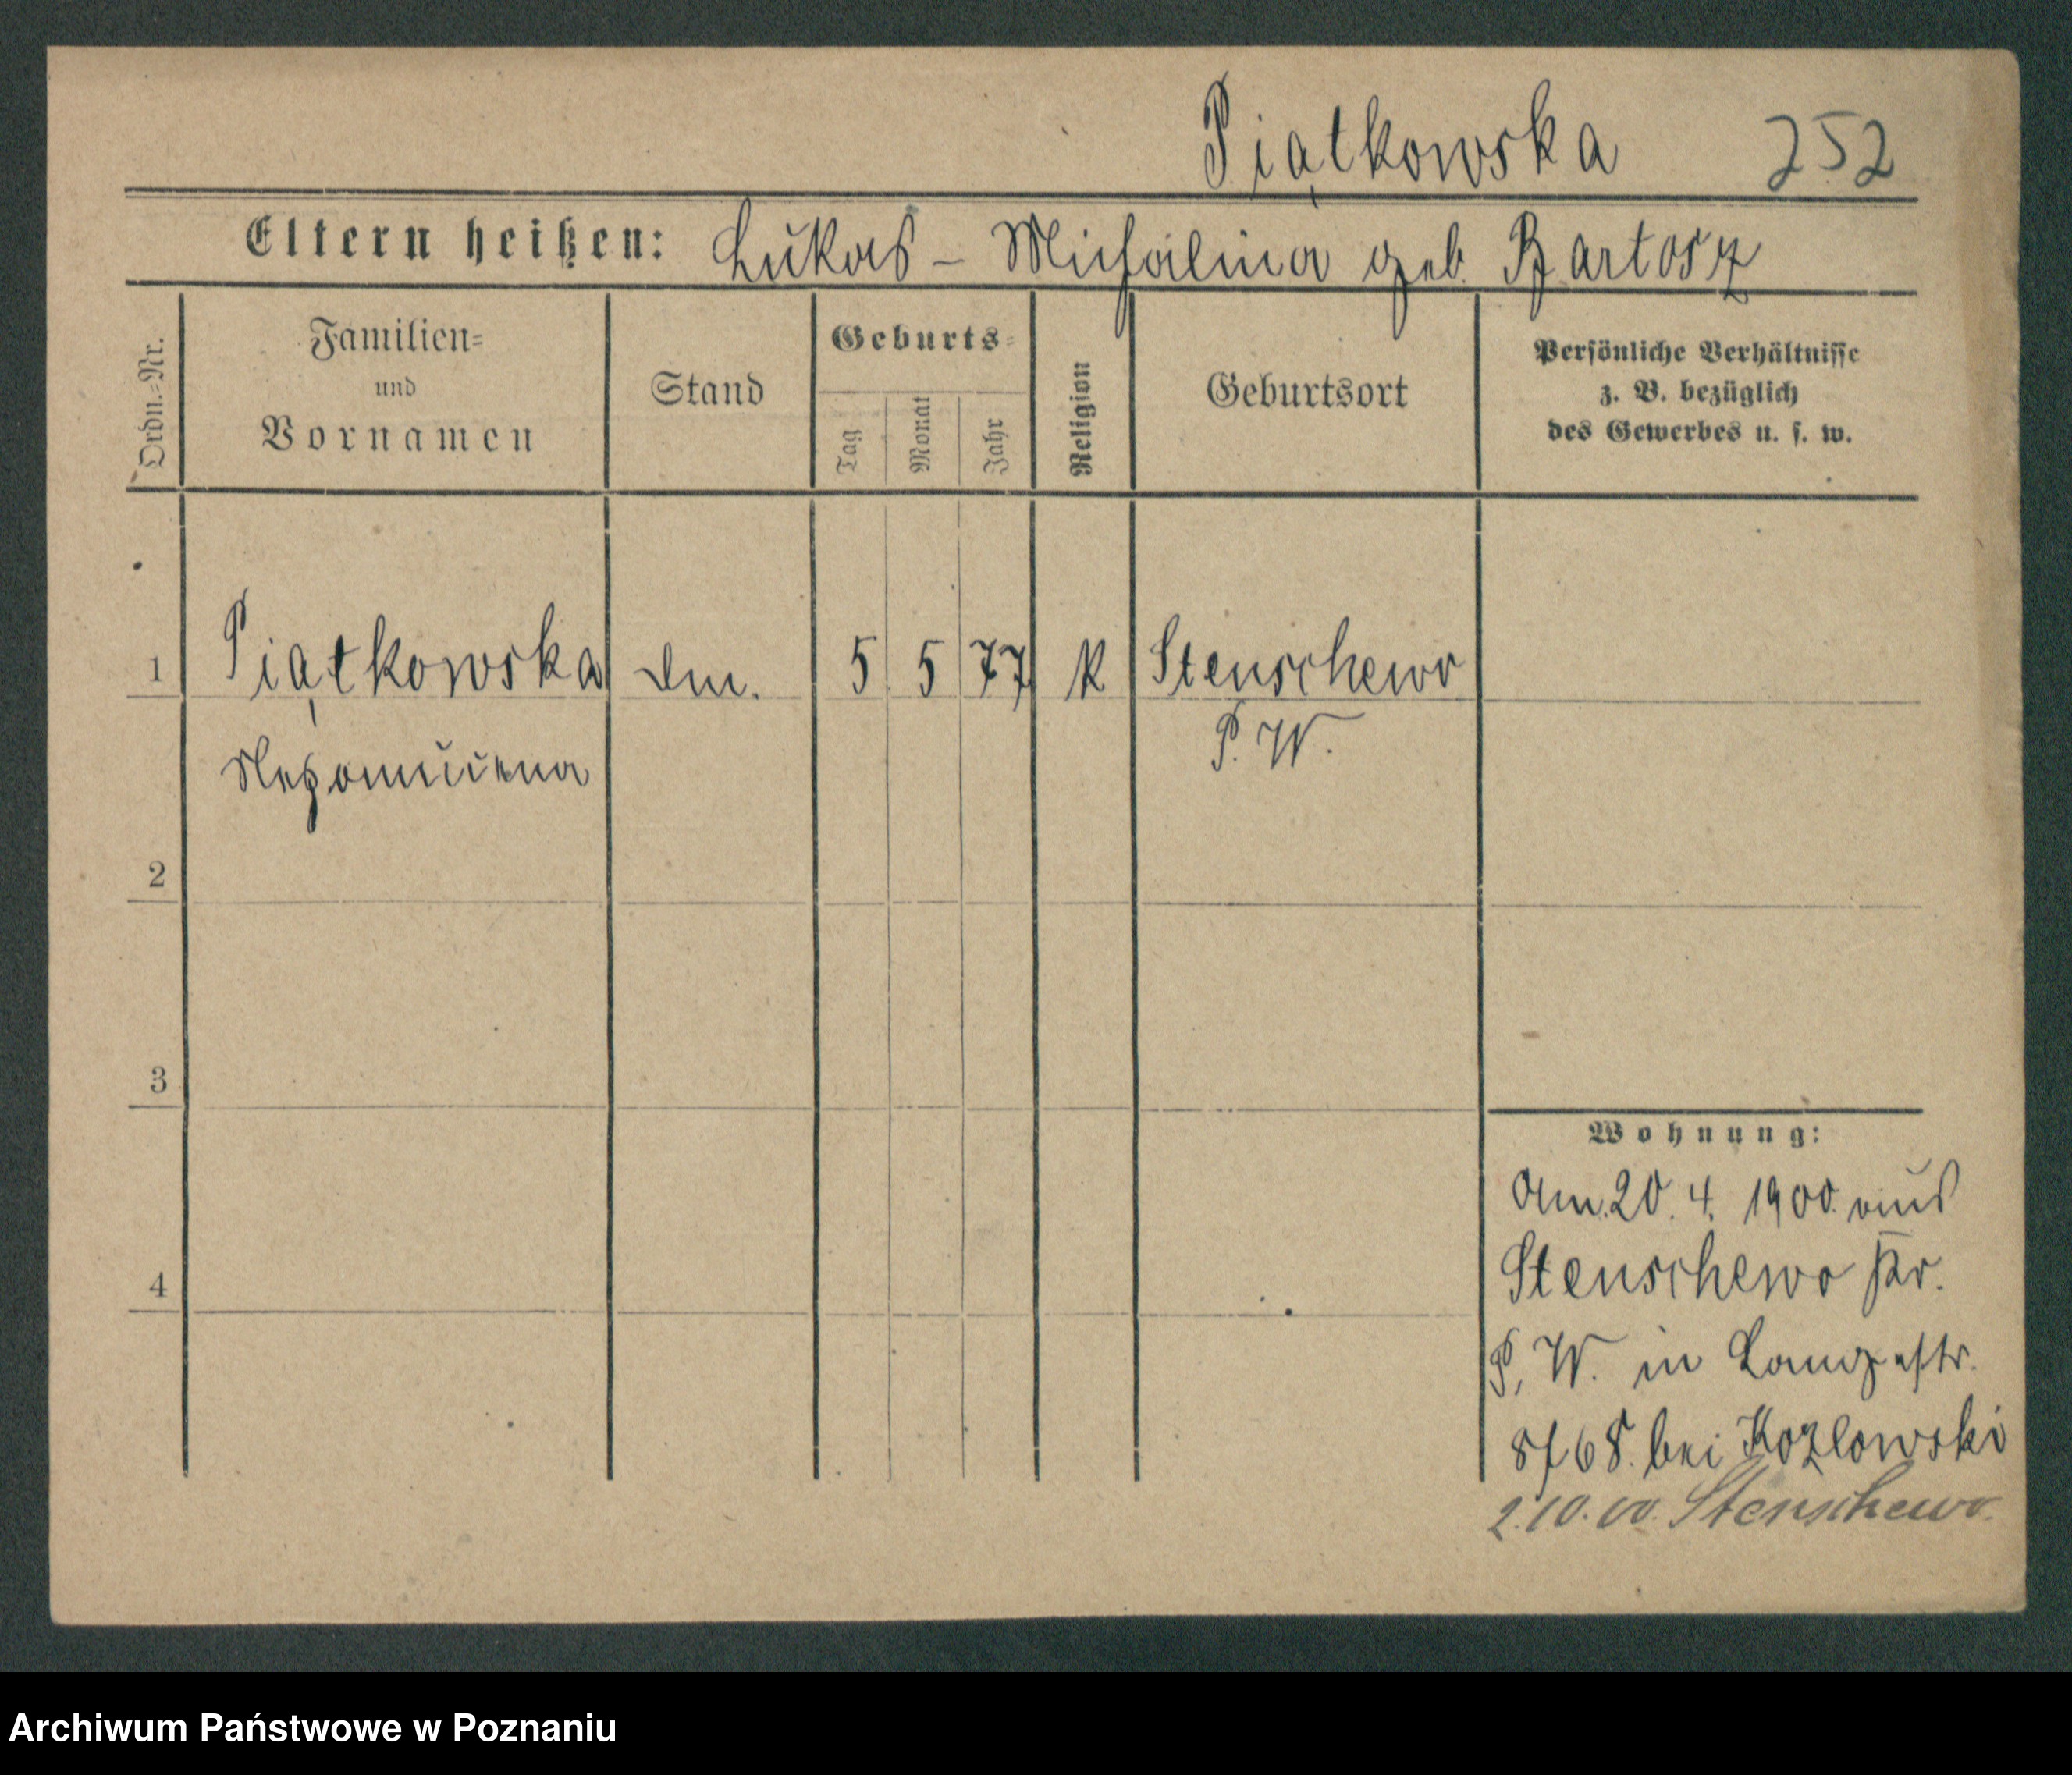 Piątkowska 252
Eltern heißen: Lukas - Michalina geb. Bartosz
Ordn.-Nr.
Familien-
und
Vornamen
Stand
Geburts-
Tag
Monat
Jahr
Religion
Geburtsort
Persönliche Verhältnisse
z. B. bezüglich
des Gewerbes u. s. w.
1 Piątkowska 5 5 77 K Stenschewo
P. W.
Nepomucena
2
3
4
Wohnung:
Am 20. 4. 1900 aus
Stenschewo Kr.
P. W. in Langestr.
8/68. bei Kozlowski
2.10.00. Stenschewo.
Archiwum Państwowe w Poznaniu